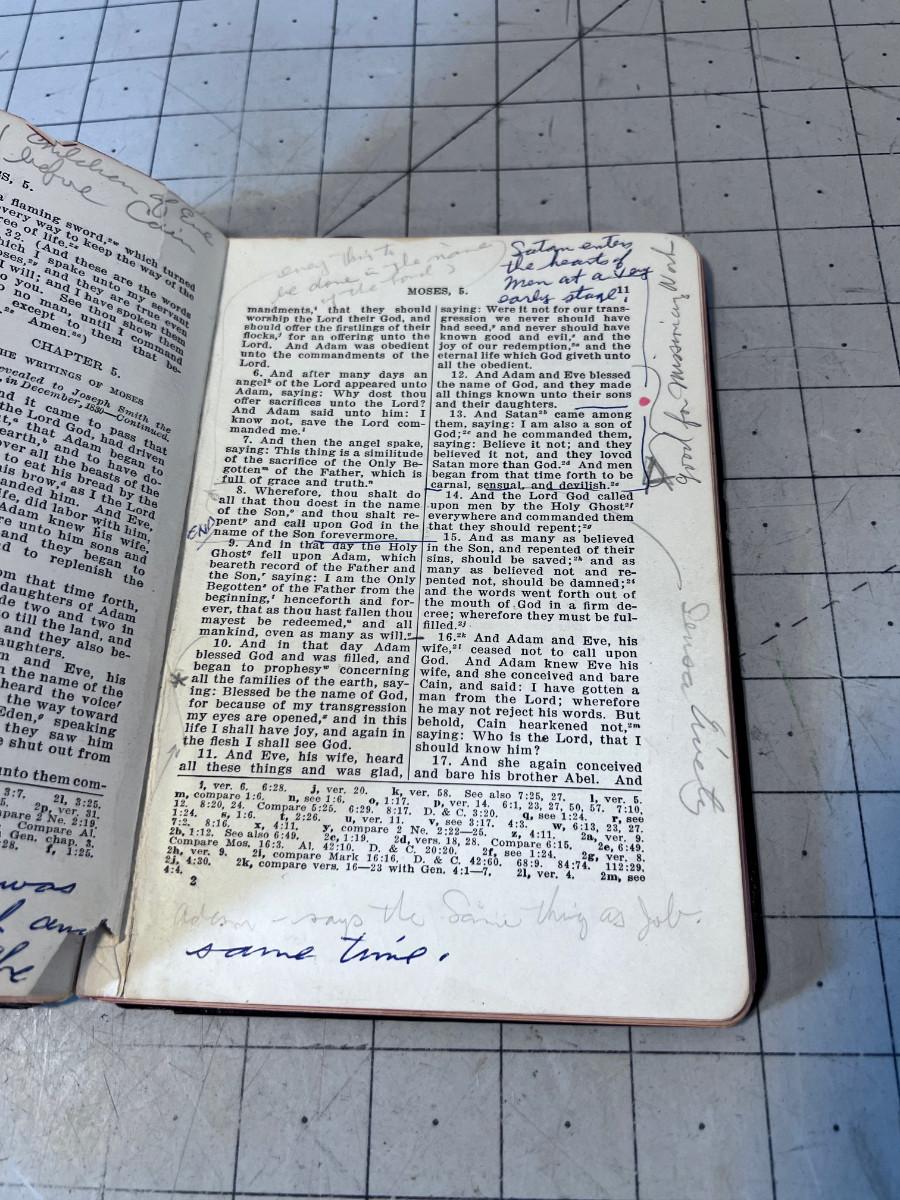 children of Eve
before Cain
S, 5.
a flaming sword,²ʷ which turned
every way to keep the way of the
ree of life.²ˣ
32. (And these are the words
which I spake unto my servant
oses,²ʸ and they are true even
I will; and I have spoken them
o you. See thou show them
o no man, until I command
except to them that be-
Amen.²ᵃ)
CHAPTER 5.
HE WRITINGS OF MOSES
evealed to Joseph Smith the
in December, 1830—Continued.
nd it came to pass that
the Lord God, had driven
that Adam began to
earth, and to have do-
over all the beasts of the
to eat his bread by the
his brow, as I the Lord
anded him. And Eve,
ife, did labor with him,
Adam knew his wife,
re unto him sons and
and they began to
d to replenish the
om that time forth,
daughters of Adam
de two and two in
to till the land, and
and they also be-
aughters.
m and Eve, his
n the name of the
heard the voice
the way toward
Eden, speaking
they saw him
e shut out from
unto them com-
3:7. 2l, 3:25.
2p, ver. 31.
pare 2 Ne. 2:19,
Compare Al.
Gen. chap. 3.
:28. f, 1:25.
was
same
be done in the name
of the Lord?
Satan enters
the hearts of
men at a very
early stage!
MOSES, 5. 11
mandments,ⁱ that they should
worship the Lord their God, and
should offer the firstlings of their
flocks,ʲ for an offering unto the
Lord. And Adam was obedient
unto the commandments of the
Lord.
6. And after many days an
angelᵏ of the Lord appeared unto
Adam, saying: Why dost thou
offer sacrifices unto the Lord?
And Adam said unto him: I
know not, save the Lord com-
manded me.ˡ
7. And then the angel spake,
saying: This thing is a similitude
of the sacrifice of the Only Be-
gottenᵐ of the Father, which is
full of grace and truth.ⁿ
8. Wherefore, thou shalt do
all that thou doest in the name
of the Son,ᵒ and thou shalt re-
pentᵖ and call upon God in the
name of the Son forevermore.
END
9. And in that day the Holy
Ghostᑫ fell upon Adam, which
beareth record of the Father and
the Son,ʳ saying: I am the Only
Begottenˢ of the Father from the
beginning,ᵗ henceforth and for-
ever, that as thou hast fallen thou
mayest be redeemed,ᵘ and all
mankind, even as many as will.ᵛ
10. And in that day Adam
blessed God and was filled, and
began to prophesyʷ concerning
all the families of the earth, say-
ing: Blessed be the name of God,
for because of my transgression
my eyes are opened,ˣ and in this
life I shall have joy, and again in
the flesh I shall see God.
11. And Eve, his wife, heard
all these things and was glad,
saying: Were it not for our trans-
gression we never should have
had seed,ʸ and never should have
known good and evil,ᶻ and the
joy of our redemption,²ᵃ and the
eternal life which God giveth unto
all the obedient.
12. And Adam and Eve blessed
the name of God, and they made
all things known unto their sons
and their daughters.
13. And Satan²ᵇ came among
them, saying: I am also a son of
God;²ᶜ and he commanded them,
saying: Believe it not; and they
believed it not, and they loved
Satan more than God.²ᵈ And men
began from that time forth to be
carnal, sensual, and devilish.²ᵉ
14. And the Lord God called
upon men by the Holy Ghost²ᶠ
everywhere and commanded them
that they should repent;²ᵍ
15. And as many as believed
in the Son, and repented of their
sins, should be saved;²ʰ and as
many as believed not and re-
pented not, should be damned;²ⁱ
and the words went forth out of
the mouth of God in a firm de-
cree; wherefore they must be ful-
filled.²ʲ
16.²ᵏ And Adam and Eve, his
wife,²ˡ ceased not to call upon
God. And Adam knew Eve his
wife, and she conceived and bare
Cain, and said: I have gotten a
man from the Lord; wherefore
he may not reject his words. But
behold, Cain hearkened not,²ᵐ
saying: Who is the Lord, that I
should know him?
17. And she again conceived
and bare his brother Abel. And
good for Missionary Work
Society
i, ver. 6. 6:28. j, ver. 20. k, ver. 58. See also 7:25, 27. l, ver. 5.
m, compare 1:6. n, see 1:6. o, 1:17. p, ver. 14. 6:1, 23, 27, 50, 57. 7:10,
12. 8:20, 24. Compare 5:25. 6:29. 8:17. D. & C. 3:20. q, see 1:24. r, see
1:24. s, 1:6. t, 2:26. u, ver. 11. v, see 3:17. 4:3. w, 6:13, 23, 27.
7:2. 8:16. x, 4:11. y, compare 2 Ne. 2:22—25. z, 4:11. 2a, ver. 9.
2b, 1:12. See also 6:49. 2c, 1:19. 2d, vers. 18, 28. Compare 6:15. 2e, 6:49.
Compare Mos. 16:3. Al. 42:10. D. & C. 20:20. 2f, see 1:24. 2g, ver. 8.
2h, ver. 9. 2i, compare Mark 16:16. D. & C. 42:60. 68:9. 84:74. 112:29.
2j, 4:30. 2k, compare vers. 16—23 with Gen. 4:1—7. 2l, ver. 4. 2m, see
4:4.
2
Adam - says the Same thing as Job.
same time.